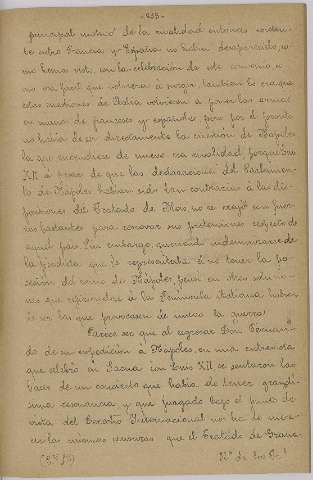 -233-
principal motivo de la rivalidad entonces existen-
te entre Francia y España no había desaparecido, co-
mo hemos visto, con la celebración de este convenio, y
no era fácil que volviera a surgir; también lo era que
estas cuestiones de Italia volvieran a poner las armas
en manos de franceses y españoles, pero por el pronto
no había de ser directamente la cuestión de Nápoles
la que encendiese de nuevo su rivalidad, porque Luis
XII a pesar de que las declaraciones del Parlamen-
to de Nápoles habían sido tan contrarias a las dis-
posiciones del Tratado de Blois, no se creyó con fuer-
zas bastantes para renovar sus pretensiones respecto de
aquel país. Sin embargo, queriendo indemnizarse de
la pérdida que le representaba el no tener la po-
sesión del reino de Nápoles, pensó en otras solucio-
nes que refiriéndose a la Península italiana habían
de ser las que provocasen de nuevo la guerra.
Parece ser que al regresar Don Fernan-
do de su expedición a Nápoles, en una entrevista
que celebró en Saona con Luis XII se sentaron las
bases de un concierto que había de tener grandí-
sima resonancia y que juzgado bajo el punto de
vista del Derecho Internacional no ha de mere-
cer las mismas censuras que el Tratado de Grana-